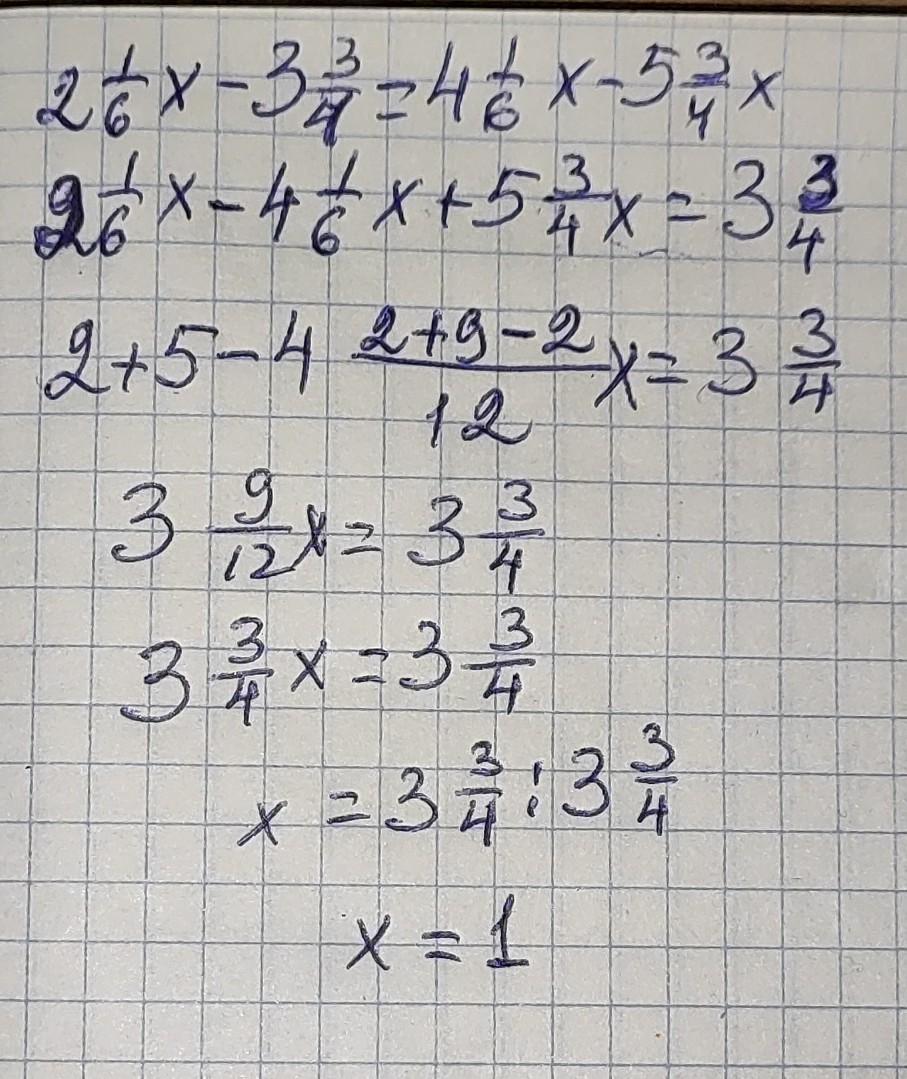 2 1/6 x - 3 3/4 = 4 1/6 x - 5 3/4 x
2 1/6 x - 4 1/6 x + 5 3/4 x = 3 3/4
2 + 5 - 4 (2 + 9 - 2)/12 x = 3 3/4
3 9/12 x = 3 3/4
3 3/4 x = 3 3/4
x = 3 3/4 : 3 3/4
x = 1